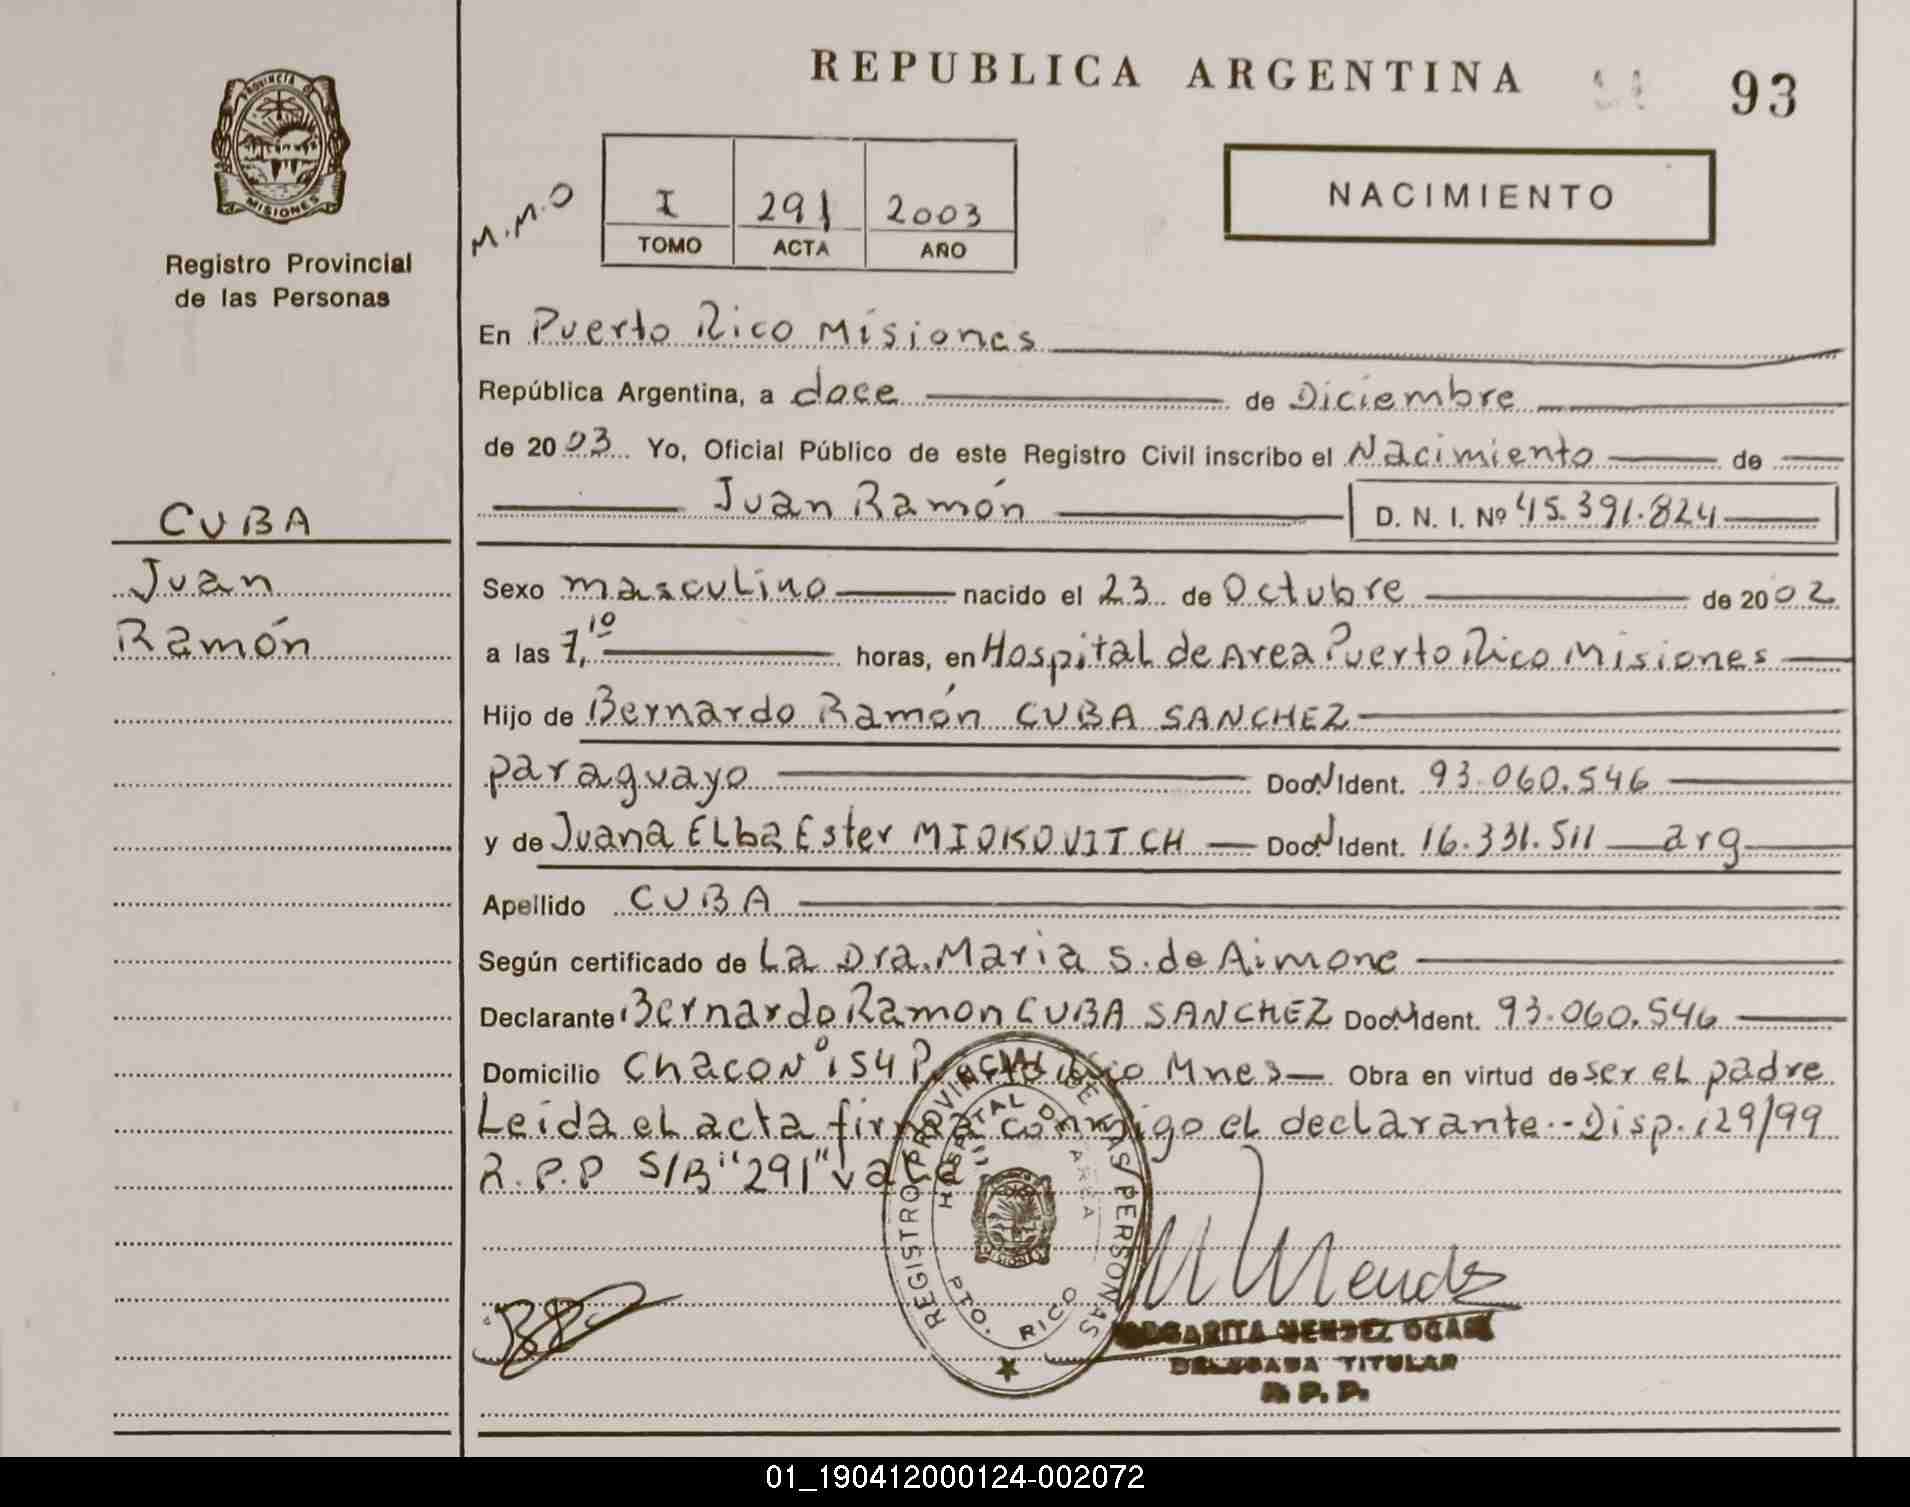 REPUBLICA ARGENTINA
93
PROVINCIA DE
MISIONES
Registro Provincial
de las Personas
M.M.O
I 291 2003
TOMO ACTA AÑO
NACIMIENTO
En Puerto Rico Misiones
República Argentina, a doce de Diciembre
de 2003 Yo, Oficial Público de este Registro Civil inscribo el Nacimiento de
Juan Ramón D. N. I. Nº 45.391.824
CUBA
Juan
Ramón
Sexo masculino nacido el 23 de Octubre de 2002
a las 7,10 horas, en Hospital de Area Puerto Rico Misiones
Hijo de Bernardo Ramón CUBA SANCHEZ
paraguayo Doc.N Ident. 93.060.546
y de Juana Elba Ester MIOKOVITCH Doc.N Ident. 16.331.511 arg
Apellido CUBA
Según certificado de La Dra. Maria S. de Aimone
Declarante Bernardo Ramon CUBA SANCHEZ Doc.N Ident. 93.060.546
Domicilio Chaco Nº 154 Puerto Rico Mnes Obra en virtud de ser el padre
Leida el acta firma conmigo el declarante.- Disp. 129/99
R.P.P S/B "291" vale
REGISTRO PROVINCIAL DE LAS PERSONAS
HOSPITAL DE AREA
PTO. RICO
M Mendez
MARGARITA MENDEZ OCAR
DELEGADA TITULAR
R.P.P.
01_190412000124-002072